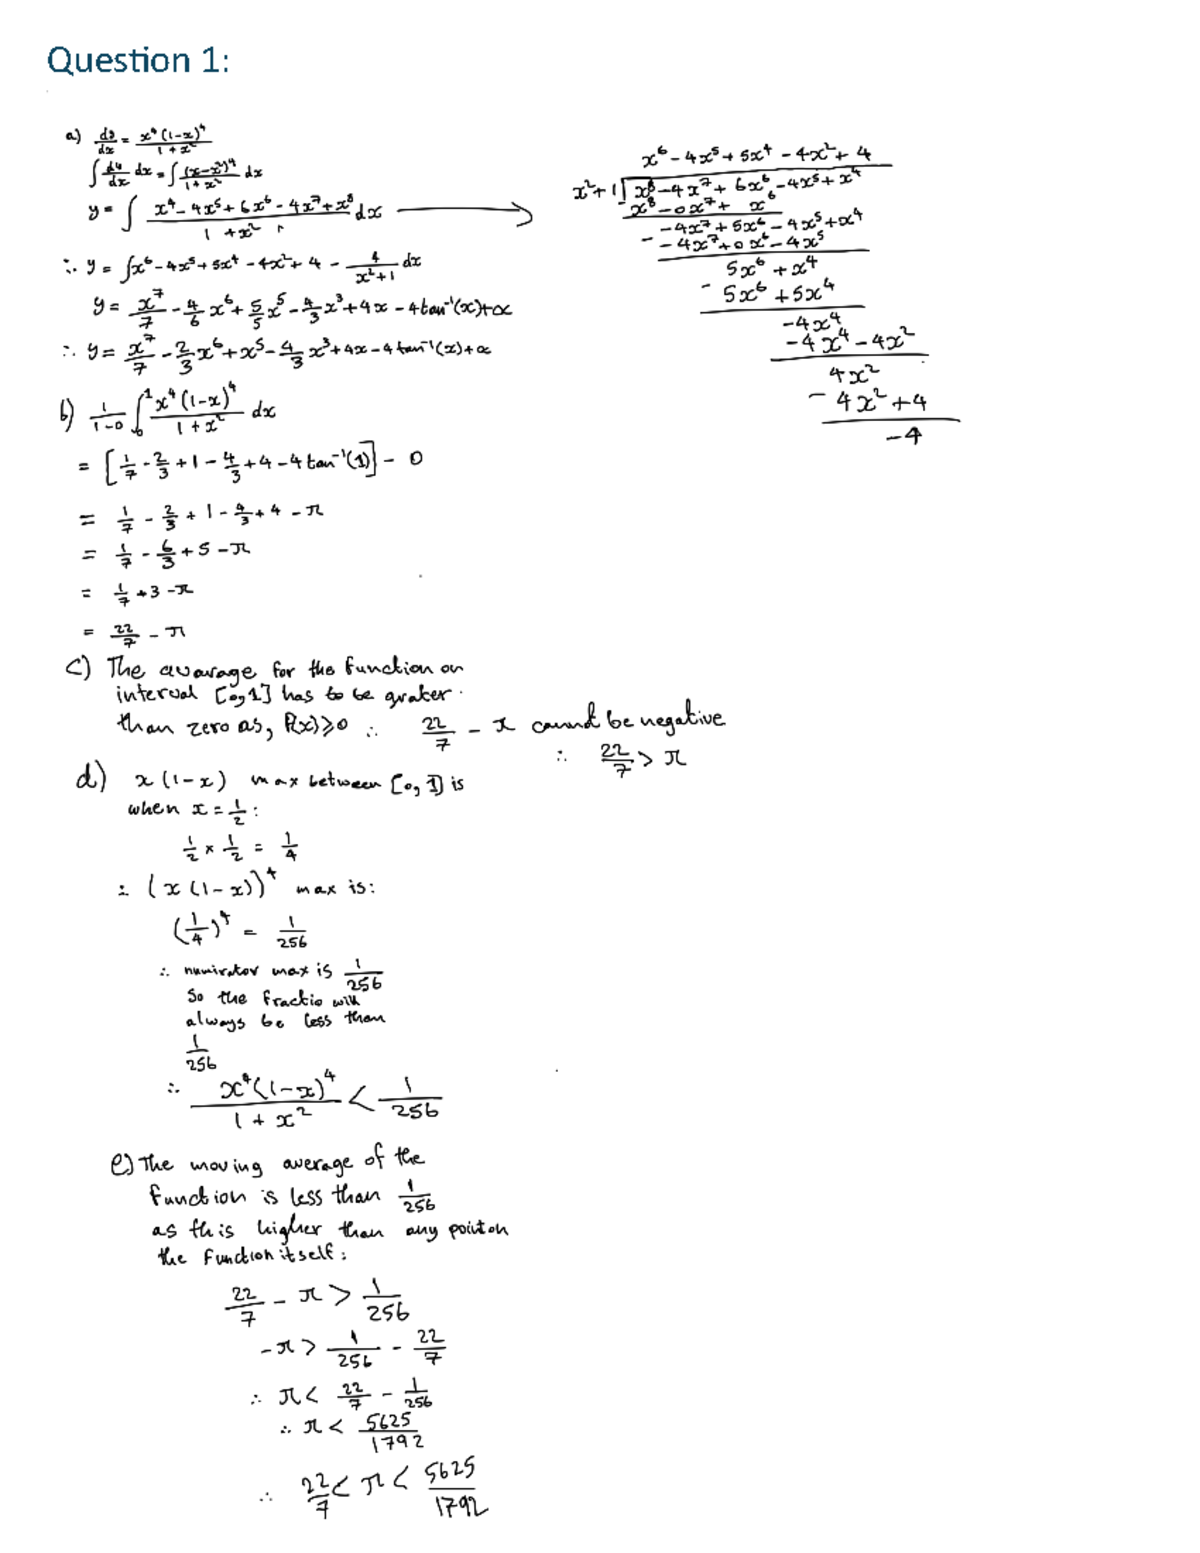 Question 1:
a) dy/dx = x⁴(1-x)⁴/1+x²
∫ dy/dx dx = ∫ (x-x²)⁴/1+x² dx
y = ∫ x⁴-4x⁵+6x⁶-4x⁷+x⁸/1+x² dx
∴ y = ∫x⁶-4x⁵+5x⁴-4x²+4 - 4/x²+1 dx
y = x⁷/7 - 4/6 x⁶ + 5/5 x⁵ - 4/3 x³ + 4x - 4tan⁻¹(x)+c
∴ y = x⁷/7 - 2/3 x⁶ + x⁵ - 4/3 x³ + 4x - 4tan⁻¹(x)+c
x⁶-4x⁵+5x⁴-4x²+4
x²+1 x⁸-4x⁷+6x⁶-4x⁵+x⁴
- x⁸-0x⁷+x⁶
-4x⁷+5x⁶-4x⁵+x⁴
- -4x⁷+0x⁶-4x⁵
5x⁶+x⁴
- 5x⁶+5x⁴
-4x⁴
- 4x⁴-4x²
4x²
- 4x²+4
-4
b) 1/1-0 ∫₀¹ x⁴(1-x)⁴/1+x² dx
= [1/7 - 2/3 + 1 - 4/3 + 4 - 4tan⁻¹(1)] - 0
= 1/7 - 2/3 + 1 - 4/3 + 4 - π
= 1/7 - 6/3 + 5 - π
= 1/7 + 3 - π
= 22/7 - π
c) The avarage for the function on
interval [0,1] has to be grater
than zero as, f(x)≥0 ∴ 22/7 - π cannot be negative
∴ 22/7 > π
d) x(1-x) max between [0,1] is
when x = 1/2:
1/2 × 1/2 = 1/4
∴ (x(1-x))⁴ max is:
(1/4)⁴ = 1/256
∴ numirator max is 1/256
So the fractio will
always be less than
1/256
∴ x⁴(1-x)⁴/1+x² < 1/256
e) The moving average of the
function is less than 1/256
as this higher than any point on
the function itself:
22/7 - π > 1/256
-π > 1/256 - 22/7
∴ π < 22/7 - 1/256
∴ π < 5625/1792
∴ 22/7 < π < 5625/1792